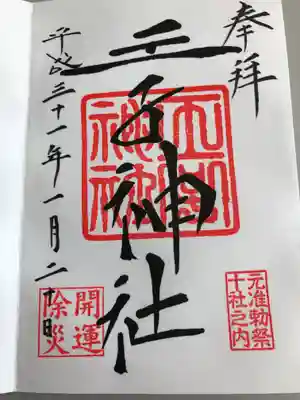 奉拝
元准勅祭
十社之内
王子神社
王子
神社
平成三十一年一月二十日
開運
除災